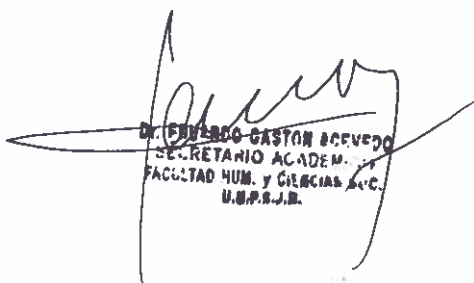 Dr. EDUARDO GASTON ACEVEDO
SECRETARIO ACADEM
FACULTAD HUM. y CIENCIAS SOC.
U.N.P.S.J.B.